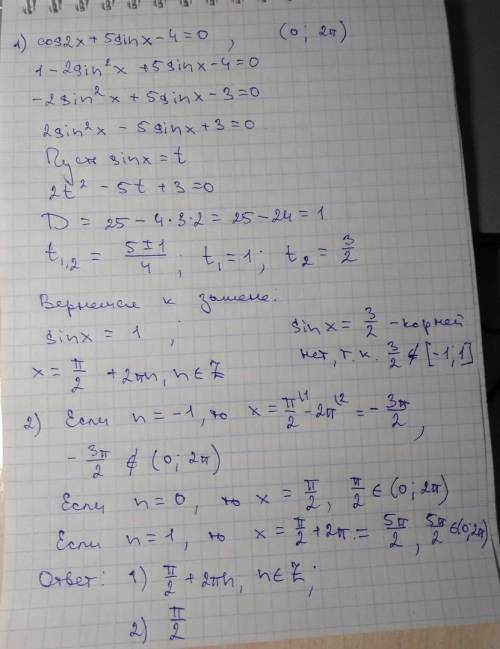 1) cos2x + 5sinx - 4 = 0 , (0; 2π)
1 - 2sin²x + 5sinx - 4 = 0
-2sin²x + 5sinx - 3 = 0
2sin²x - 5sinx + 3 = 0
Пусть sinx = t
2t² - 5t + 3 = 0
D = 25 - 4·3·2 = 25 - 24 = 1
t₁,₂ = (5±1)/4 ; t₁ = 1; t₂ = 3/2
Вернемся к замене:
sinx = 1 ; sinx = 3/2 - корней
x = π/2 + 2πn, n ∈ Z нет, т.к. 3/2 ∉ [-1; 1]
2) Если n = -1, то x = π/2 \1 - 2π \2 = -3π/2 ,
-3π/2 ∉ (0; 2π)
Если n = 0, то x = π/2, π/2 ∈ (0; 2π)
Если n = 1, то x = π/2 + 2π = 5π/2, 5π/2 ∈ (0; 2π)
Ответ: 1) π/2 + 2πn, n ∈ Z;
2) π/2